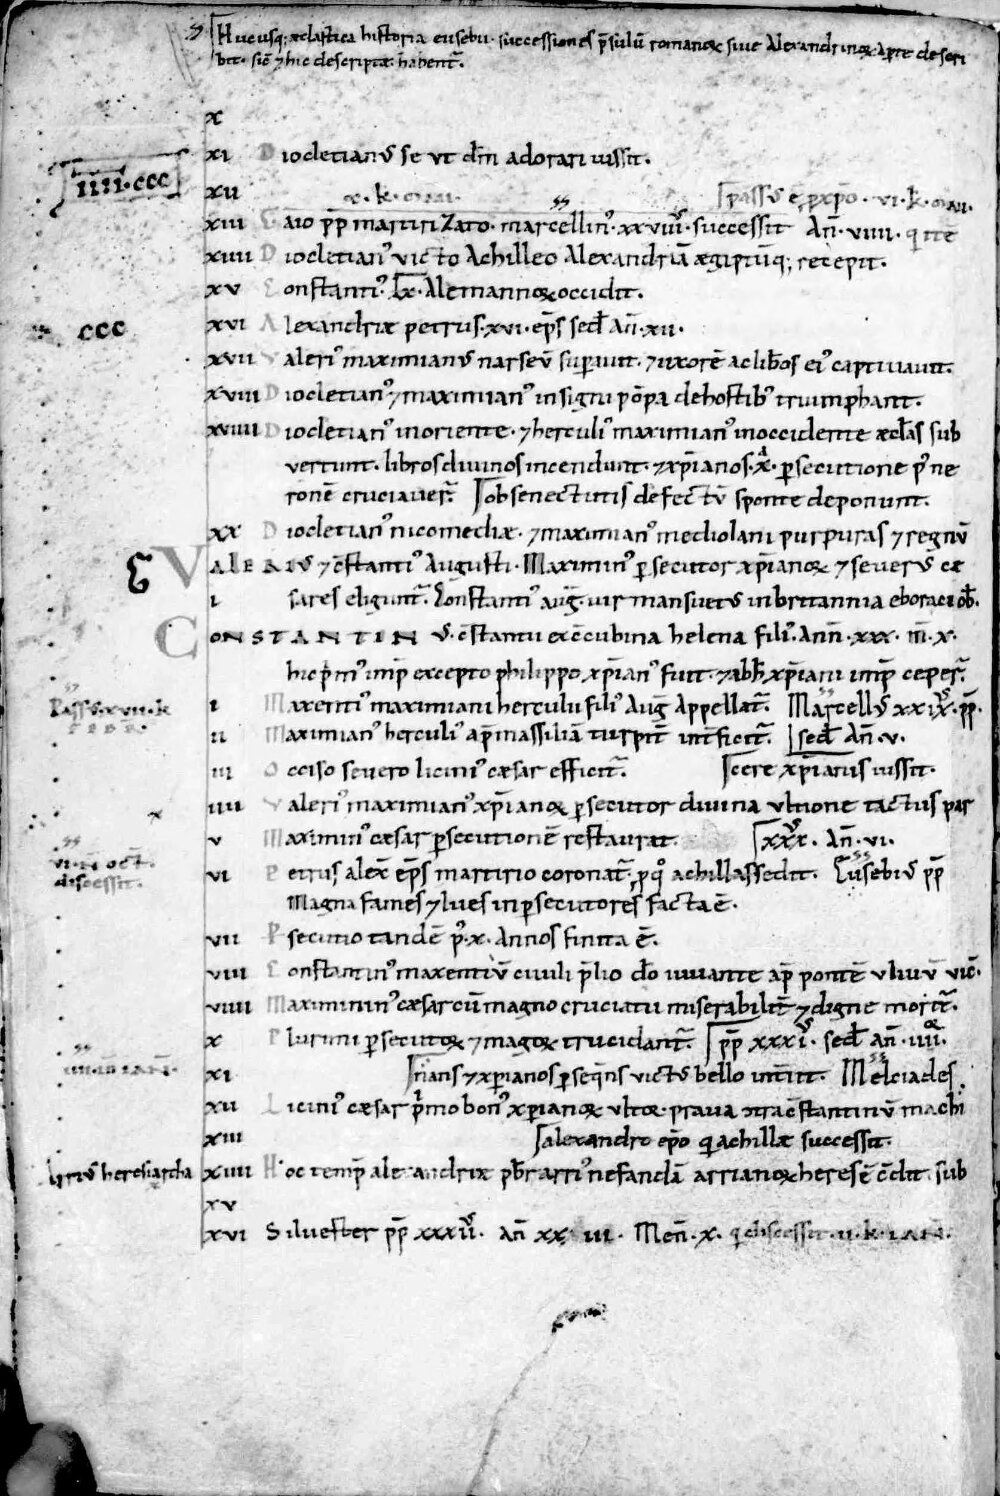 Hucusq; æclastica historia eusebii · successiones p̄sulū romanoꝝ siue Alexandrinoꝝ · aperte descri
bit · sic̄ ⁊ hic descriptæ habent᷑.
x
xi Diocletianꝰ se ut dm̄ adorari iussit.
IIII·CCC
xii x·k·mai. passꝰ ē ꝑ xp̄o · vi·k·mai.
xiii Gaio pp̄ martirizato · marcellinꝰ · xxviiiiꝰ · successit An̄ · viiii · q ite
xiiii Diocletianꝰ victo Achilleo Alexandriā ægiptūq; recepit.
xv Constantiꝰ · lx̄ · Alemannoꝝ occidit.
ccc
xvi Alexandriæ petrus · xvi · ep̄s sed̄ An̄ · xii ·
xvii Valeriꝰ maximianꝰ narseū suꝑauit · ⁊ uxorē ac lib̄os eiꝰ captiuauit.
xviii Diocletianꝰ ⁊ maximianꝰ insigni pōpa de hostibꝰ triumphant.
xviiii Diocletianꝰ in oriente · ⁊ herculiꝰ maximianꝰ in occidente æcl̄as sub
vertunt · libros diuinos incendunt · ⁊ xp̄ianos · x · ꝑsecutione pꝰ ne
ronē cruciauer᷑. ob senectutis defectū sponte deponunt.
xx Diocletianꝰ nicomediæ · ⁊ maximianꝰ mediolani purpuras ⁊ regnū
VALERIꝰ ⁊ c̄stantiꝰ Augusti · Maximinꝰ ꝑsecutor xp̄ianoꝝ ⁊ seuerꝰ ce
i sares eligunt᷑. Constantiꝰ aug̅ · uir mansuetꝰ in britannia eboraci ob̄.
CONSTANTINꝰ · c̄stantii ex c̄cubina helena filiꝰ · Ann̄ · xxx · m̄ · x ·
hic pͥmꝰ imp̄ excepto philippo xp̄ianꝰ fuit · ⁊ abh̄ xp̄iani imp̄ᷓ ceper᷑.
Passꝰ xvii·k
FEBR̄.
i Maxentiꝰ maximiani herculii filiꝰ Aug̅ Appellat᷑. Marcellꝰ xxixꝰ · pp̄.
ii Maximianꝰ herculiꝰ ap̄ massiliā turpit̄ int̄ficit᷑. sed̄ An̄ · v ·
iii Occiso seuero liciniꝰ cæsar efficit᷑. cere xp̄ianis iussit.
iiii Valeriꝰ maximianꝰ xp̄ianoꝝ ꝑsecutor diuina ultione tactus par
v Maximinꝰ cæsar ꝑsecutionē restaurat. xxxꝰ · An̄ · vi ·
vi·N oct̄.
discessit.
vi Petrus alex̄ ep̄s martirio coronat᷑ · ꝓ qͦ achillas sedit. Eusebiꝰ pp̄
Magna fames ⁊ lues in ꝑsecutores facta ē.
vii Psecutio tandē pꝰ · x · Annos finita ē.
viii Constantinꝰ maxentiū ciuili p̄lio do iuuante ap̄ pontē uluiū vic̄.
viiii Maximinꝰ cæsar cū magno cruciatu miserabilit̄ ⁊ digne morit᷑.
x Plurimi ꝑsecutoꝝ ⁊ magoꝝ trucidant᷑. pp̄ xxxiꝰ · sed̄ An̄ · iiii
iiii·ID IAN̄.
xi nians ⁊ xp̄ianos ꝑseqͥens victꝰ bello int̄iit. Melciades
xii Liciniꝰ cæsar pͥmo bonꝰ xp̄ianoꝝ ultor · praua ꝯtra c̄stantinū machi
xiii alexandro ep̄o qui achillæ successit.
Arriꝰ heresiarcha
xiiii Hoc temp̄ alexandriæ pb̄r arriꝰ nefandā arrianoꝝ heresē c̄dit · sub
xv
xvi Siluester pp̄ xxxiiꝰ · an̄ xxiii · Men̄ · x · q discessit · ii·k·IAN̄.